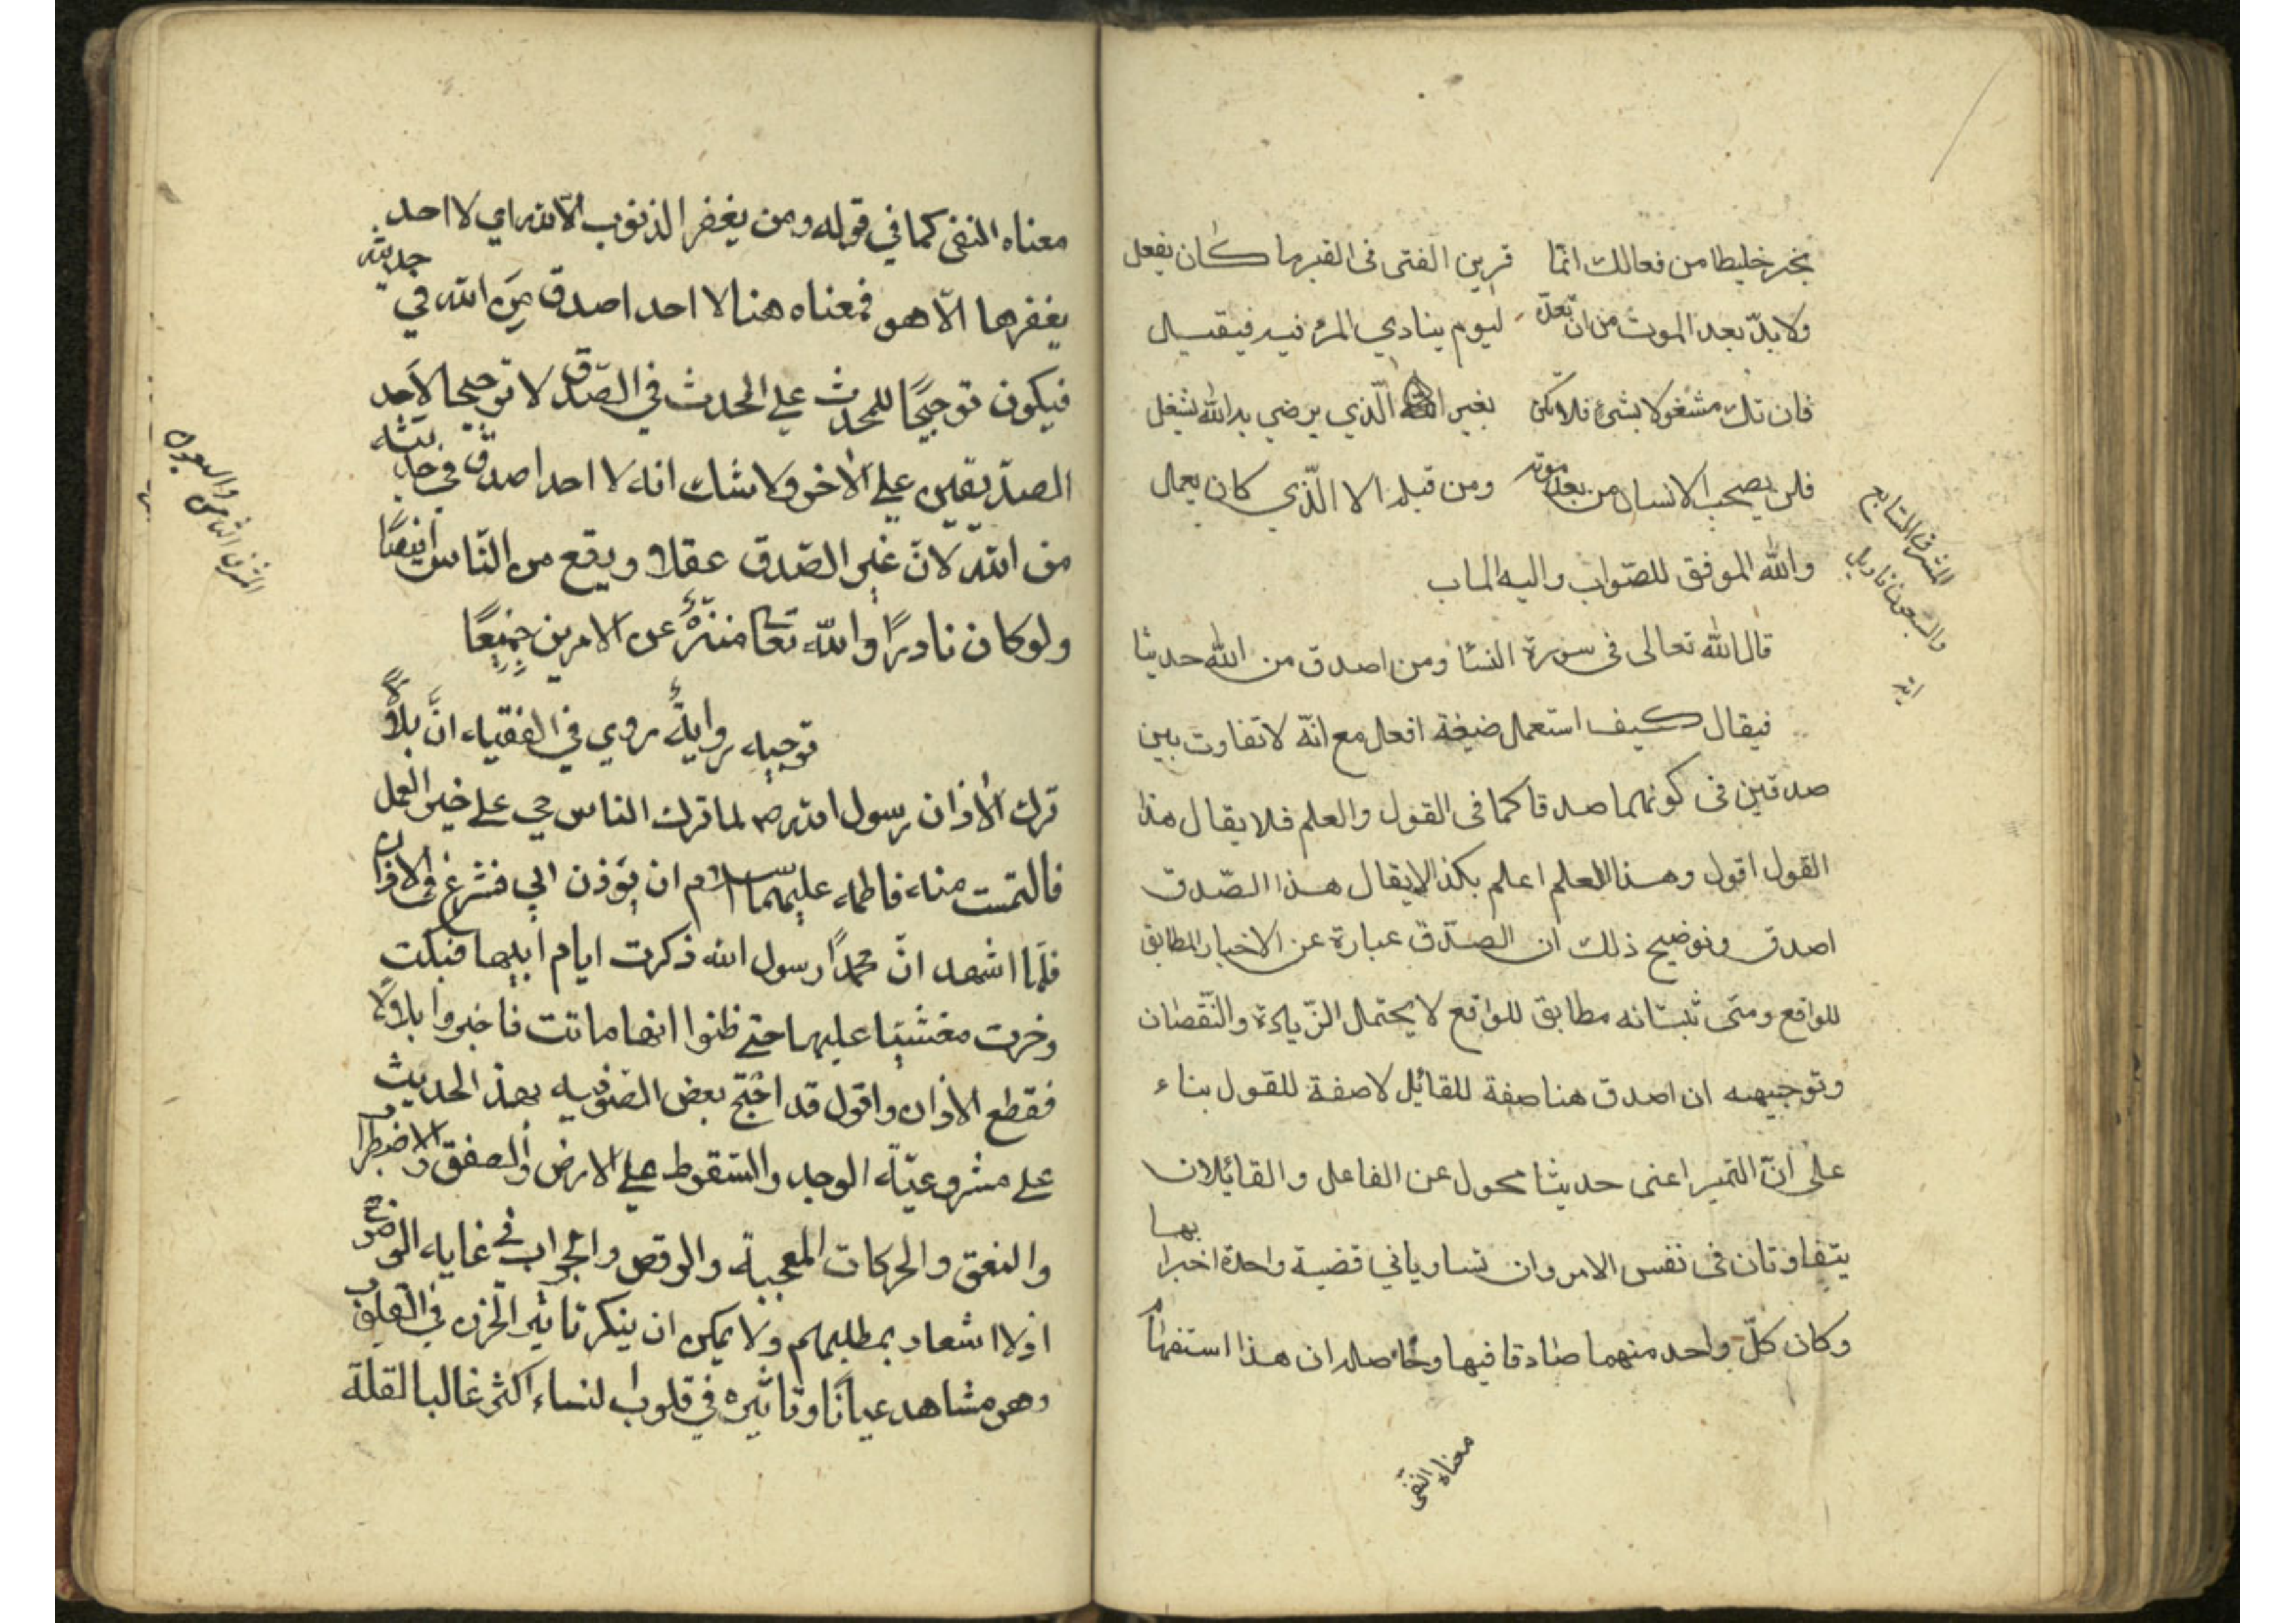 تخير خليطا من فعالك انما قرين الفتى فى القبر ما كان يفعل
ولا بدّ بعد الموت من ان تعدّه ليوم ينادي المرء فيه فيقبل
فان تك مشغولا بشيء فلا تكن بغير الّذي يرضي به الله تشغل
فلن يصحب الانسان من بعد موته ومن قبله الا الّذي كان يعمل
والله الموفق للصّواب واليه الماب
المشرق السّابع
والسّبعون تاويل
اية
قال الله تعالى فى سورة النسا ومن اصدق من الله حديثا
فيقال كيف استعمل صيغة افعل مع انّه لا تفاوت بين
صدقين فى كونهما صدقا كما فى القول والعلم فلا يقال هذا
القول اقول وهذا العلم اعلم بكذا لا يقال هذا الصّدق
اصدق وتوضيح ذلك ان الصّدق عبارة عن الاخبار المطابق
للواقع ومتى ثبت انه مطابق للواقع لا يحتمل الزّيادة والنّقصان
وتوجيهه ان اصدق هنا صفة للقائل لا صفة للقول بناء
على انّ التميز اعنى حديثا محول عن الفاعل والقائلان
يتفاوتان فى نفس الامر وان تساويا في قضية واحدة اخبرا بها
وكان كلّ واحد منهما صادقا فيها وحاصله ان هذا استفهام
معناه النفى
معناه النفى كما في قوله ومن يغفر الذنوب الّا الله اي لا احد
يغفرها الّا هو فمعناه هنا لا احد اصدق مِنَ الله في حديثه
فيكون توجيحًا للمحدث علي المحدث في الصّدق لا توجيحا لاَحد
الصدّيقين علي الاخر ولا شك انه لا احد اصدق في حديثه
من الله لانّ غير الصّدق عقلا ويقع من النّاس ايضًا
ولو كان نادرًا والله تعا منزّهٌ عن الامرين جميعًا
المشرق الثامن
والسبعون
توجيه روايةٌ روي في الفقيه انَّ بلالًا
ترك الأذان رسول الله ص لما ترك الناس حي علي خير العمل
فالتمست منه فاطمه عليهما السّلام ان يؤذن الي فشرع فى الاذان
فلّما اشهد انّ محمدًا رسول الله ذكرت ايام ابيها فبكت
وخرت مغشيّا عليها حتي ظنوا انها ماتت فاخبروا بلالاً
فقطع الاذان واقول قد احّتج بعض الصّوفيه بهذ الحديث
علي مشروعيّة الوجد والسّقوط علي الارض والصفق والاضطراب
والنعق والحركات المعجبة والرقص والجواب في غايه الوضوح
اولا اشعار بمطلبهم ولا يمكن ان ينكر تاثير الحزن في القلوب
وهو مشاهد عيانًا وتاثيره في قلوب النساء اكثر غالبا لقلة